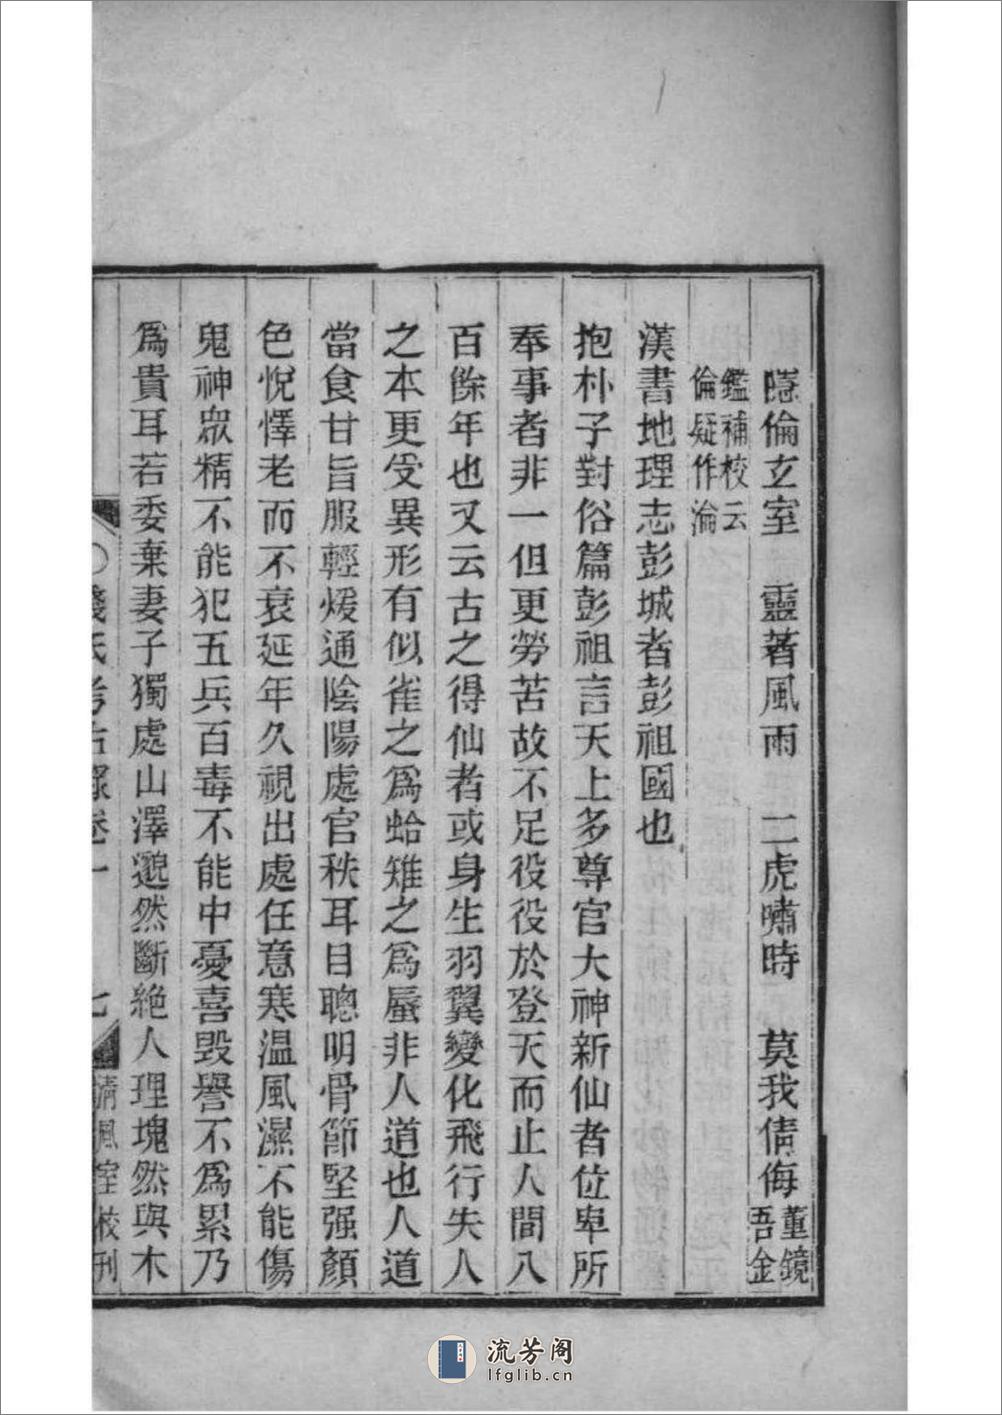 隱倫玄室　靈著風雨　二虎嘯時　莫我倩侮董鏡吾金
鑑補校云倫疑作淪
漢書地理志彭城者彭祖國也
抱朴子對俗篇彭祖言天上多尊官大神新仙者位卑所
奉事者非一但更勞苦故不足役役於登天而止人間八
百餘年也又云古之得仙者或身生羽翼變化飛行失人
之本更受異形有似雀之爲蛤雉之爲蜃非人道也人道
當食甘旨服輕煖通陰陽處官秩耳目聰明骨節堅强顏
色悅懌老而不衰延年久視出處任意寒温風濕不能傷
鬼神眾精不能犯五兵百毒不能中憂喜毀譽不爲累乃
爲貴耳若委棄妻子獨處山澤邈然斷絶人理塊然與木
錢氏考古錄卷一　七　清風室校刊
流芳阁
lfglib.cn